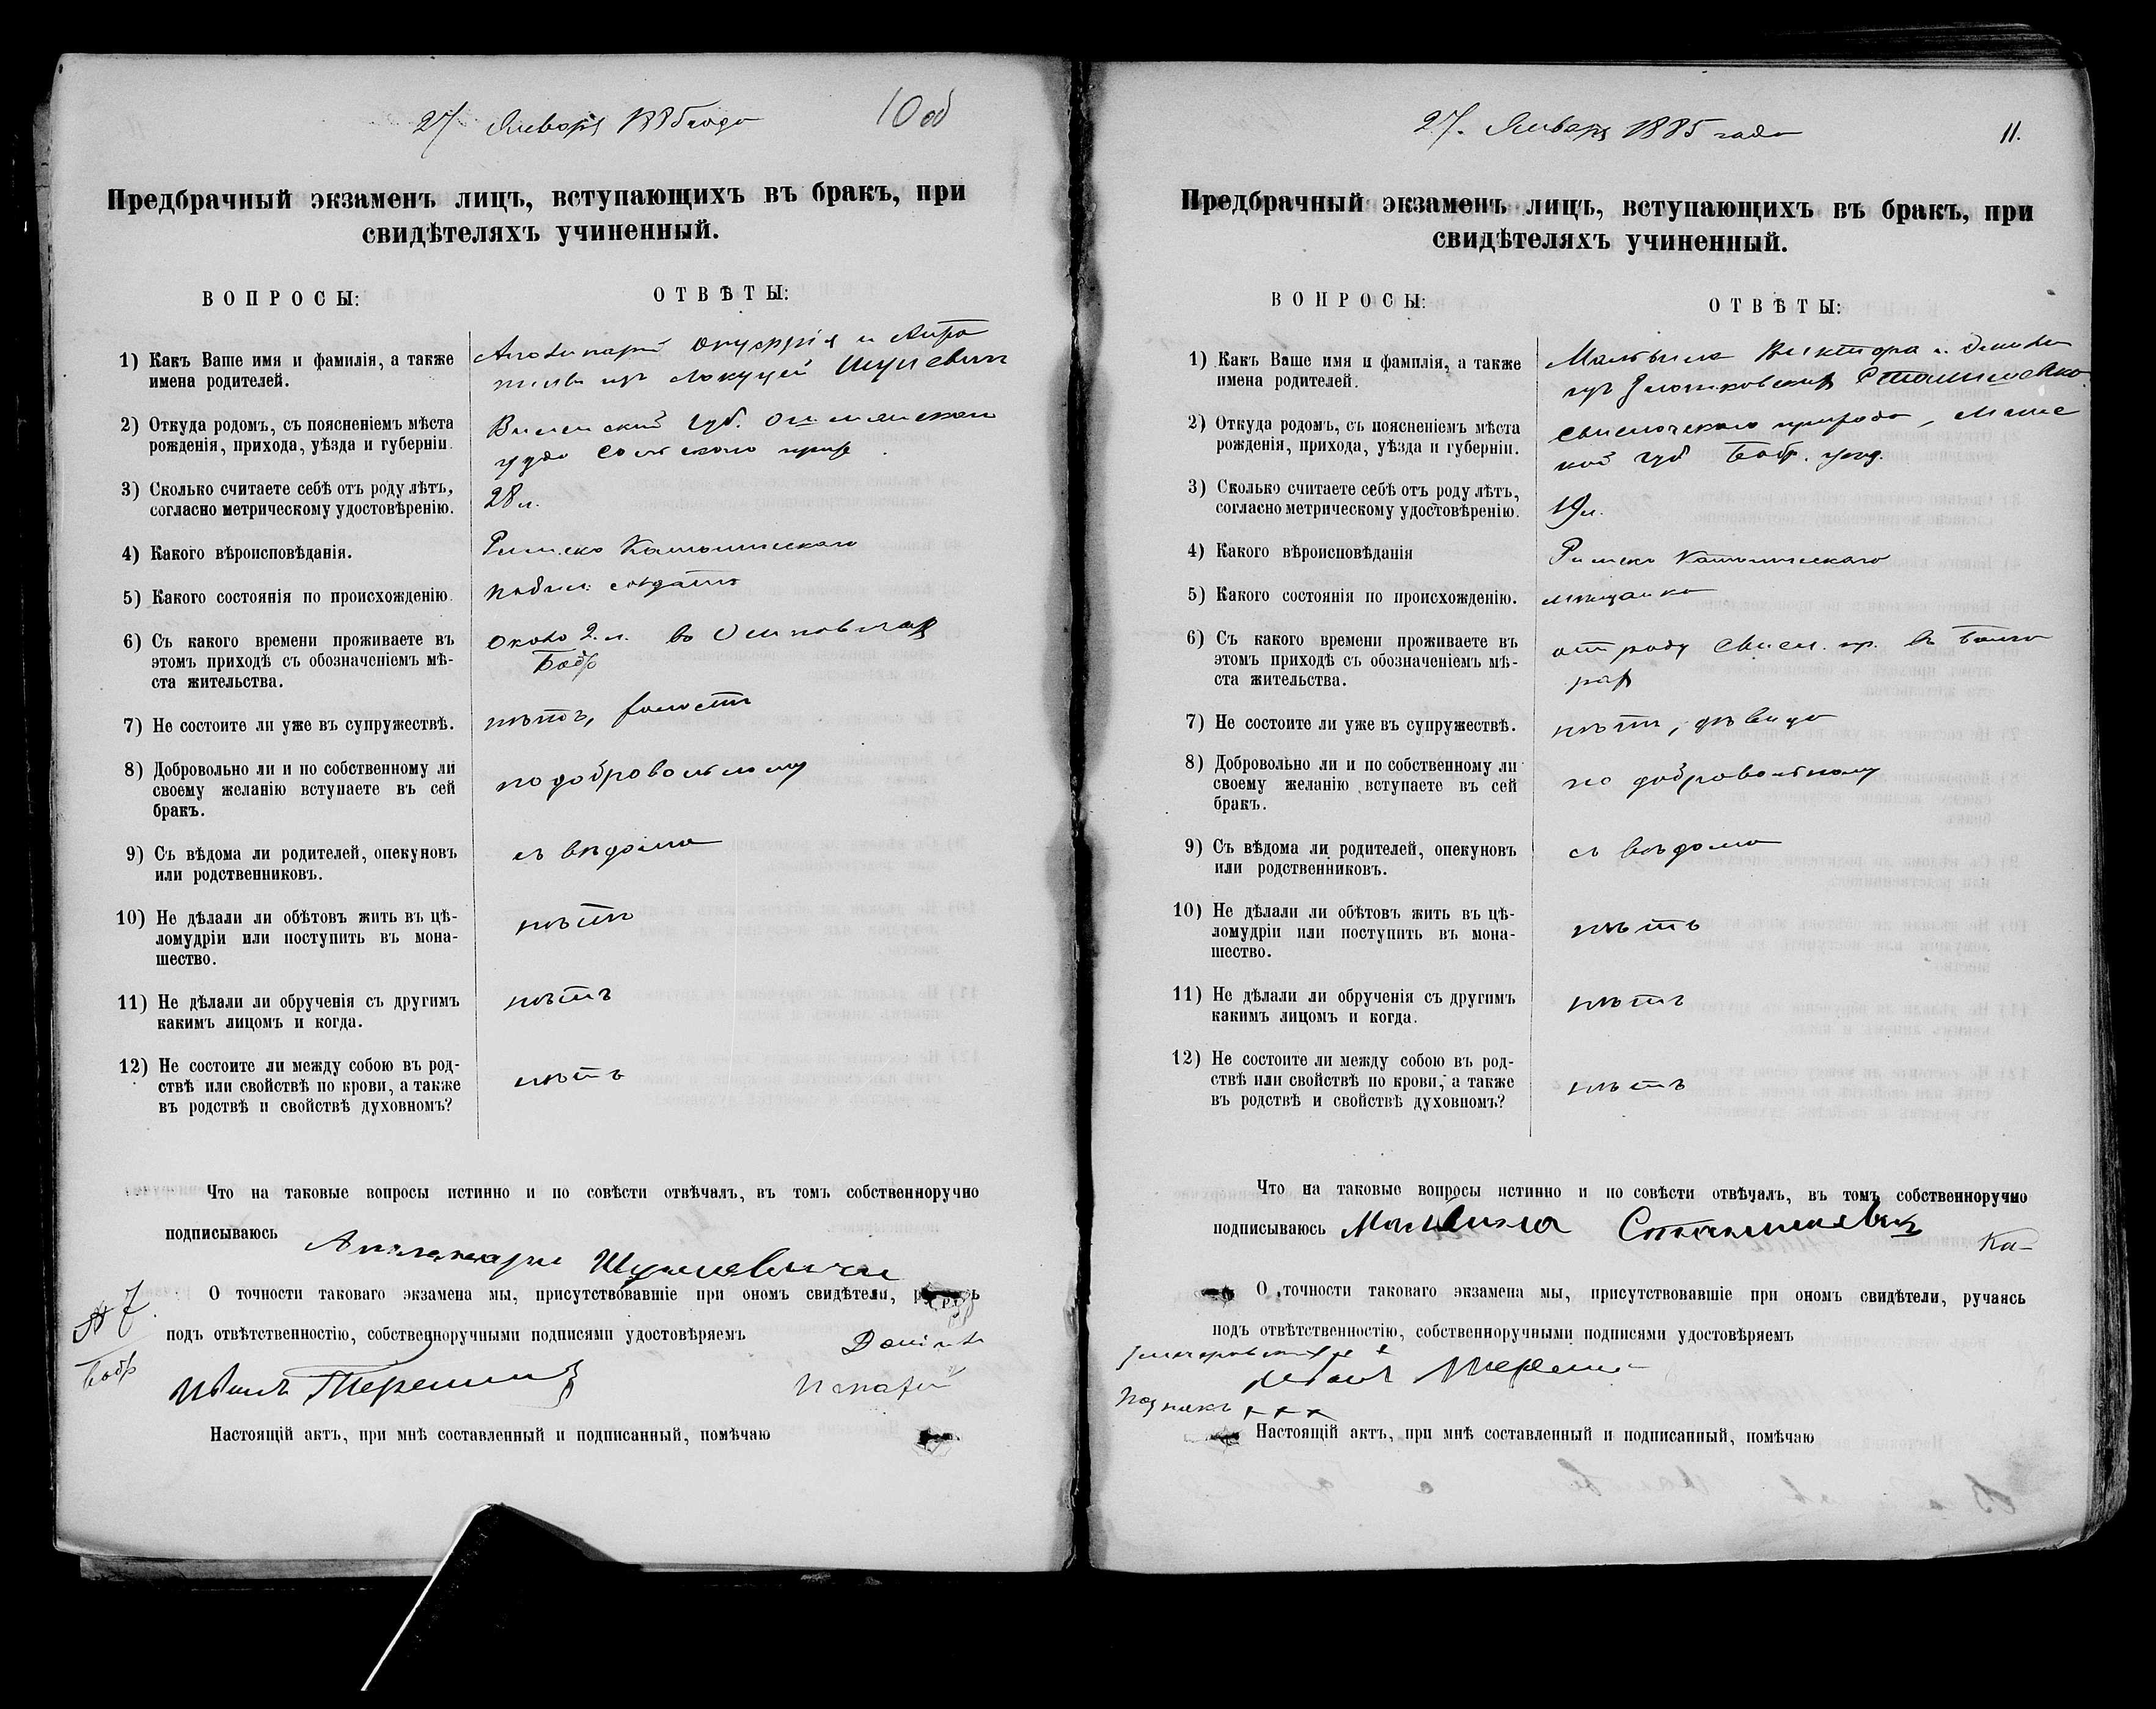 27 Января 1885 года
10 об
Предбрачный экзаменъ лицъ, вступающихъ въ бракъ, при
свидѣтеляхъ учиненный.
ВОПРОСЫ:
ОТВѢТЫ:
1) Какъ Ваше имя и фамилія, а также
имена родителей.
Онуфрія и
изъ Шушкевичи
2) Откуда родомъ, съ поясненіемъ мѣста
рожденія, прихода, уѣзда и губерніи.
губ. Ошмянскаго
3) Сколько считаете себѣ отъ роду лѣтъ,
согласно метрическому удостовѣренію.
28 л.
4) Какого вѣроисповѣданія.
Римско Католическаго
5) Какого состоянія по происхожденію.
6) Съ какого времени проживаете въ
этомъ приходѣ съ обозначеніемъ мѣ-
ста жительства.
около 2 л. въ
Бобр
7) Не состоите ли уже въ супружествѣ.
нѣтъ, холостъ
8) Добровольно ли и по собственному ли
своему желанію вступаете въ сей
бракъ.
по добровольному
9) Съ вѣдома ли родителей, опекуновъ
или родственниковъ.
съ вѣдома
10) Не дѣлали ли обѣтовъ жить въ цѣ-
ломудріи или поступить въ мона-
шество.
нѣтъ
11) Не дѣлали ли обрученія съ другимъ
какимъ лицомъ и когда.
нѣтъ
12) Не состоите ли между собою въ род-
ствѣ или свойствѣ по крови, а также
въ родствѣ и свойствѣ духовномъ?
нѣтъ
Что на таковые вопросы истинно и по совѣсти отвѣчалъ, въ томъ собственноручно
подписываюсь
О точности таковаго экзамена мы, присутствовавшіе при ономъ свидѣтели,
подъ отвѣтственностію, собственноручными подписями удостовѣряемъ
№ 7
Бобр
Иванъ
Настоящій актъ, при мнѣ составленный и подписанный, помѣчаю
27. Января 1885 года
11.
Предбрачный экзаменъ лицъ, вступающихъ въ бракъ, при
свидѣтеляхъ учиненный.
ВОПРОСЫ:
ОТВѢТЫ:
1) Какъ Ваше имя и фамилія, а также
имена родителей.
Мальвина Виктора и
изъ
2) Откуда родомъ, съ поясненіемъ мѣста
рожденія, прихода, уѣзда и губерніи.
Свислочскаго прихода, Минс
кой губ Бобр. уѣзд.
3) Сколько считаете себѣ отъ роду лѣтъ,
согласно метрическому удостовѣренію.
19 л.
4) Какого вѣроисповѣданія
Римско Католическаго
5) Какого состоянія по происхожденію.
мѣщанка
6) Съ какого времени проживаете въ
этомъ приходѣ съ обозначеніемъ мѣ-
ста жительства.
отъ роду Свисл. пр. въ
7) Не состоите ли уже въ супружествѣ.
нѣтъ, дѣвица
8) Добровольно ли и по собственному ли
своему желанію вступаете въ сей
бракъ.
по добровольному
9) Съ вѣдома ли родителей, опекуновъ
или родственниковъ.
съ вѣдома
10) Не дѣлали ли обѣтовъ жить въ цѣ-
ломудріи или поступить въ мона-
шество.
нѣтъ
11) Не дѣлали ли обрученія съ другимъ
какимъ лицомъ и когда.
нѣтъ
12) Не состоите ли между собою въ род-
ствѣ или свойствѣ по крови, а также
въ родствѣ и свойствѣ духовномъ?
нѣтъ
Что на таковые вопросы истинно и по совѣсти отвѣчалъ, въ томъ собственноручно
подписываюсь Мальвина
О точности таковаго экзамена мы, присутствовавшіе при ономъ свидѣтели, ручаясь
подъ отвѣтственностію, собственноручными подписями удостовѣряемъ
Иванъ
+++
Настоящій актъ, при мнѣ составленный и подписанный, помѣчаю